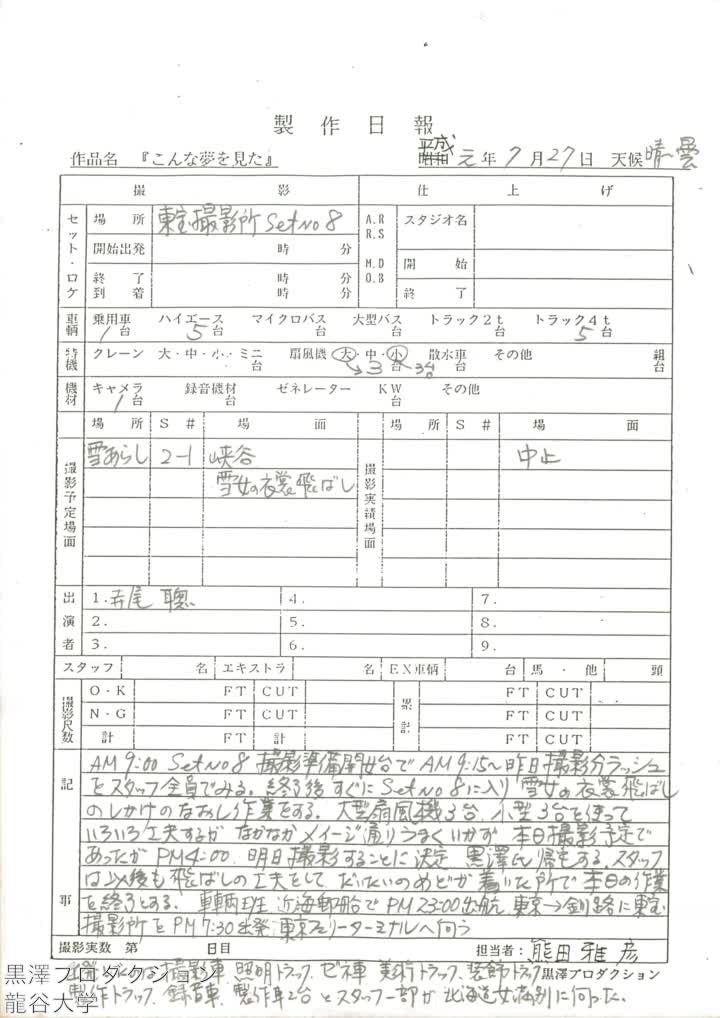 製作日報
作品名 『こんな夢を見た』 平成 元年 7月27日 天候 晴 曇
撮影 仕上げ
セット・ロケ 場所 東宝撮影所 Set No 8 A.R R.S スタジオ名
開始出発 時 分
M.D O.B 開始
終了 到着 時 分 終了
車輌 乗用車 1台 ハイエース 5台 マイクロバス 台 大型バス 台 トラック2t 台 トラック4t 5台
特機 クレーン 大・中・小・ミニ 台 扇風機 大・中・小 3台 3台 散水車 台 その他 組 台
機材 キャメラ 1台 録音機材 台 ゼネレーター KW 台 その他
場所 S# 場面 場所 S# 場面
撮影予定場面 雪あらし 2-1 峡谷 撮影実績場面 中止
雪女の衣裳飛ばし
出演者 1. 寺尾 聰 4. 7.
2. 5. 8.
3. 6. 9.
スタッフ 名 エキストラ 名 EX車輌 台 馬・他 頭
撮影尺数 O・K FT CUT 累計 FT CUT
N・G FT CUT FT CUT
計 FT 計 FT CUT
記 AM 9:00 Set No 8 撮影準備開始 AM 9:15〜昨日撮影分ラッシュ
をスタッフ全員でみる。終了後すぐに Set No 8 に入り 雪女の衣裳飛ばし
のしかけのなおし作業をする。大型扇風機3台、小型3台を使って
いろいろ工夫するが なかなかイメージ通りうまくいかず 本日撮影予定で
あったが PM 4:00 明日撮影することに決定 黒澤氏帰宅する。スタッフ
は以後も飛ばしの工夫をして だいたいのめどが着いた所で 本日の作業
を終了とする。車輌班 近海郵船で PM 23:00 出航 東京→釧路に 東宝
撮影所を PM 7:30 出発 東京フェリーターミナルへ向う
撮影実数 第 日目 担当者: 熊田 雅彦
撮影車 照明トラック、ゼネ車 美術トラック、装飾トラック
黒澤プロダクション
製作トラック、録音車、製作車2台とスタッフ一部が 北海道女満別に向った。
黒澤プロダクション
龍谷大学